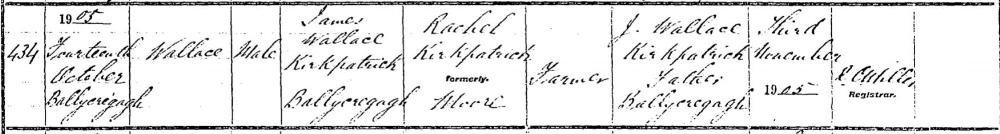 1905
434
Fourteenth
October
Ballycregagh
Wallace
Male
James
Wallace
Kirkpatrick
Ballycregagh
Rachel
Kirkpatrick
formerly
Moore
Farmer
J. Wallace
Kirkpatrick
Father
Ballycregagh
Third
November
1905
Registrar.